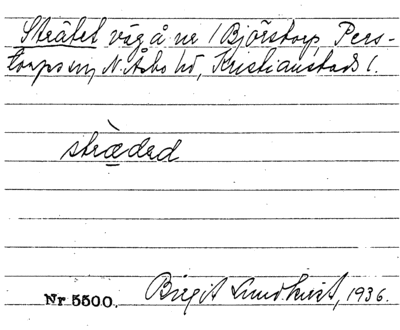 Strätet väg å nr 1 Björstorp, Pers-
torps sn, N. Åsbo hd, Kristianstads l.
strædəd
Nr 5500.
Birgit Lundkvist, 1936.